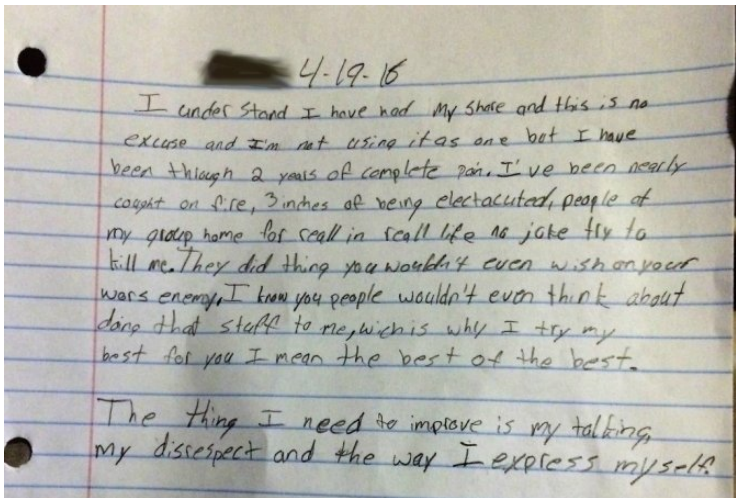 4-19-16
I under stand I have had my share and this is no
excuse and I'm not using it as one but I have
been through 2 years of complete pain. I've been nearly
cought on fire, 3 inches of being electacuted, people at
my group home for reall in reall life no joke try to
kill me. They did thing you wouldn't even wish on your
wors enemy. I know you people wouldn't even think about
doing that stuff to me, wich is why I try my
best for you I mean the best of the best.
The thing I need to improve is my talking,
my disrespect and the way I express myself.